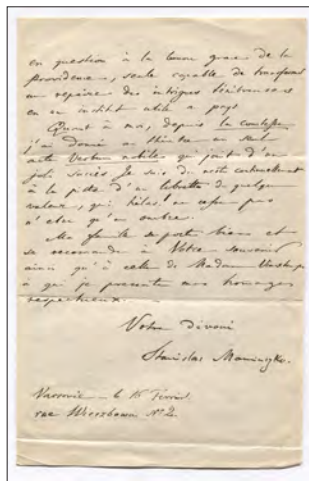 en question à la bonne grace de la
providence, seule capable de transformer
un repaire des intrigues
en un institut utile a pays
Quant à moi, depuis la comtesse
j'ai donné au théatre un seul
acte Verbum nobile qui jouit d'un
joli succès je suis du reste
à la piste d'un libretto de quelque
valeur, qui hélas! ne cesse pas
d'être qu'un ombre.
Ma famille se porte bien et
se recommande à Votre souvenir
ainsi qu'à celui de Madame
à qui je presente mes homages
respectueux.
Votre dévoué
Stanislas Moniuszko.
Varsovie le 15
rue Wierzbowa Nº 2.